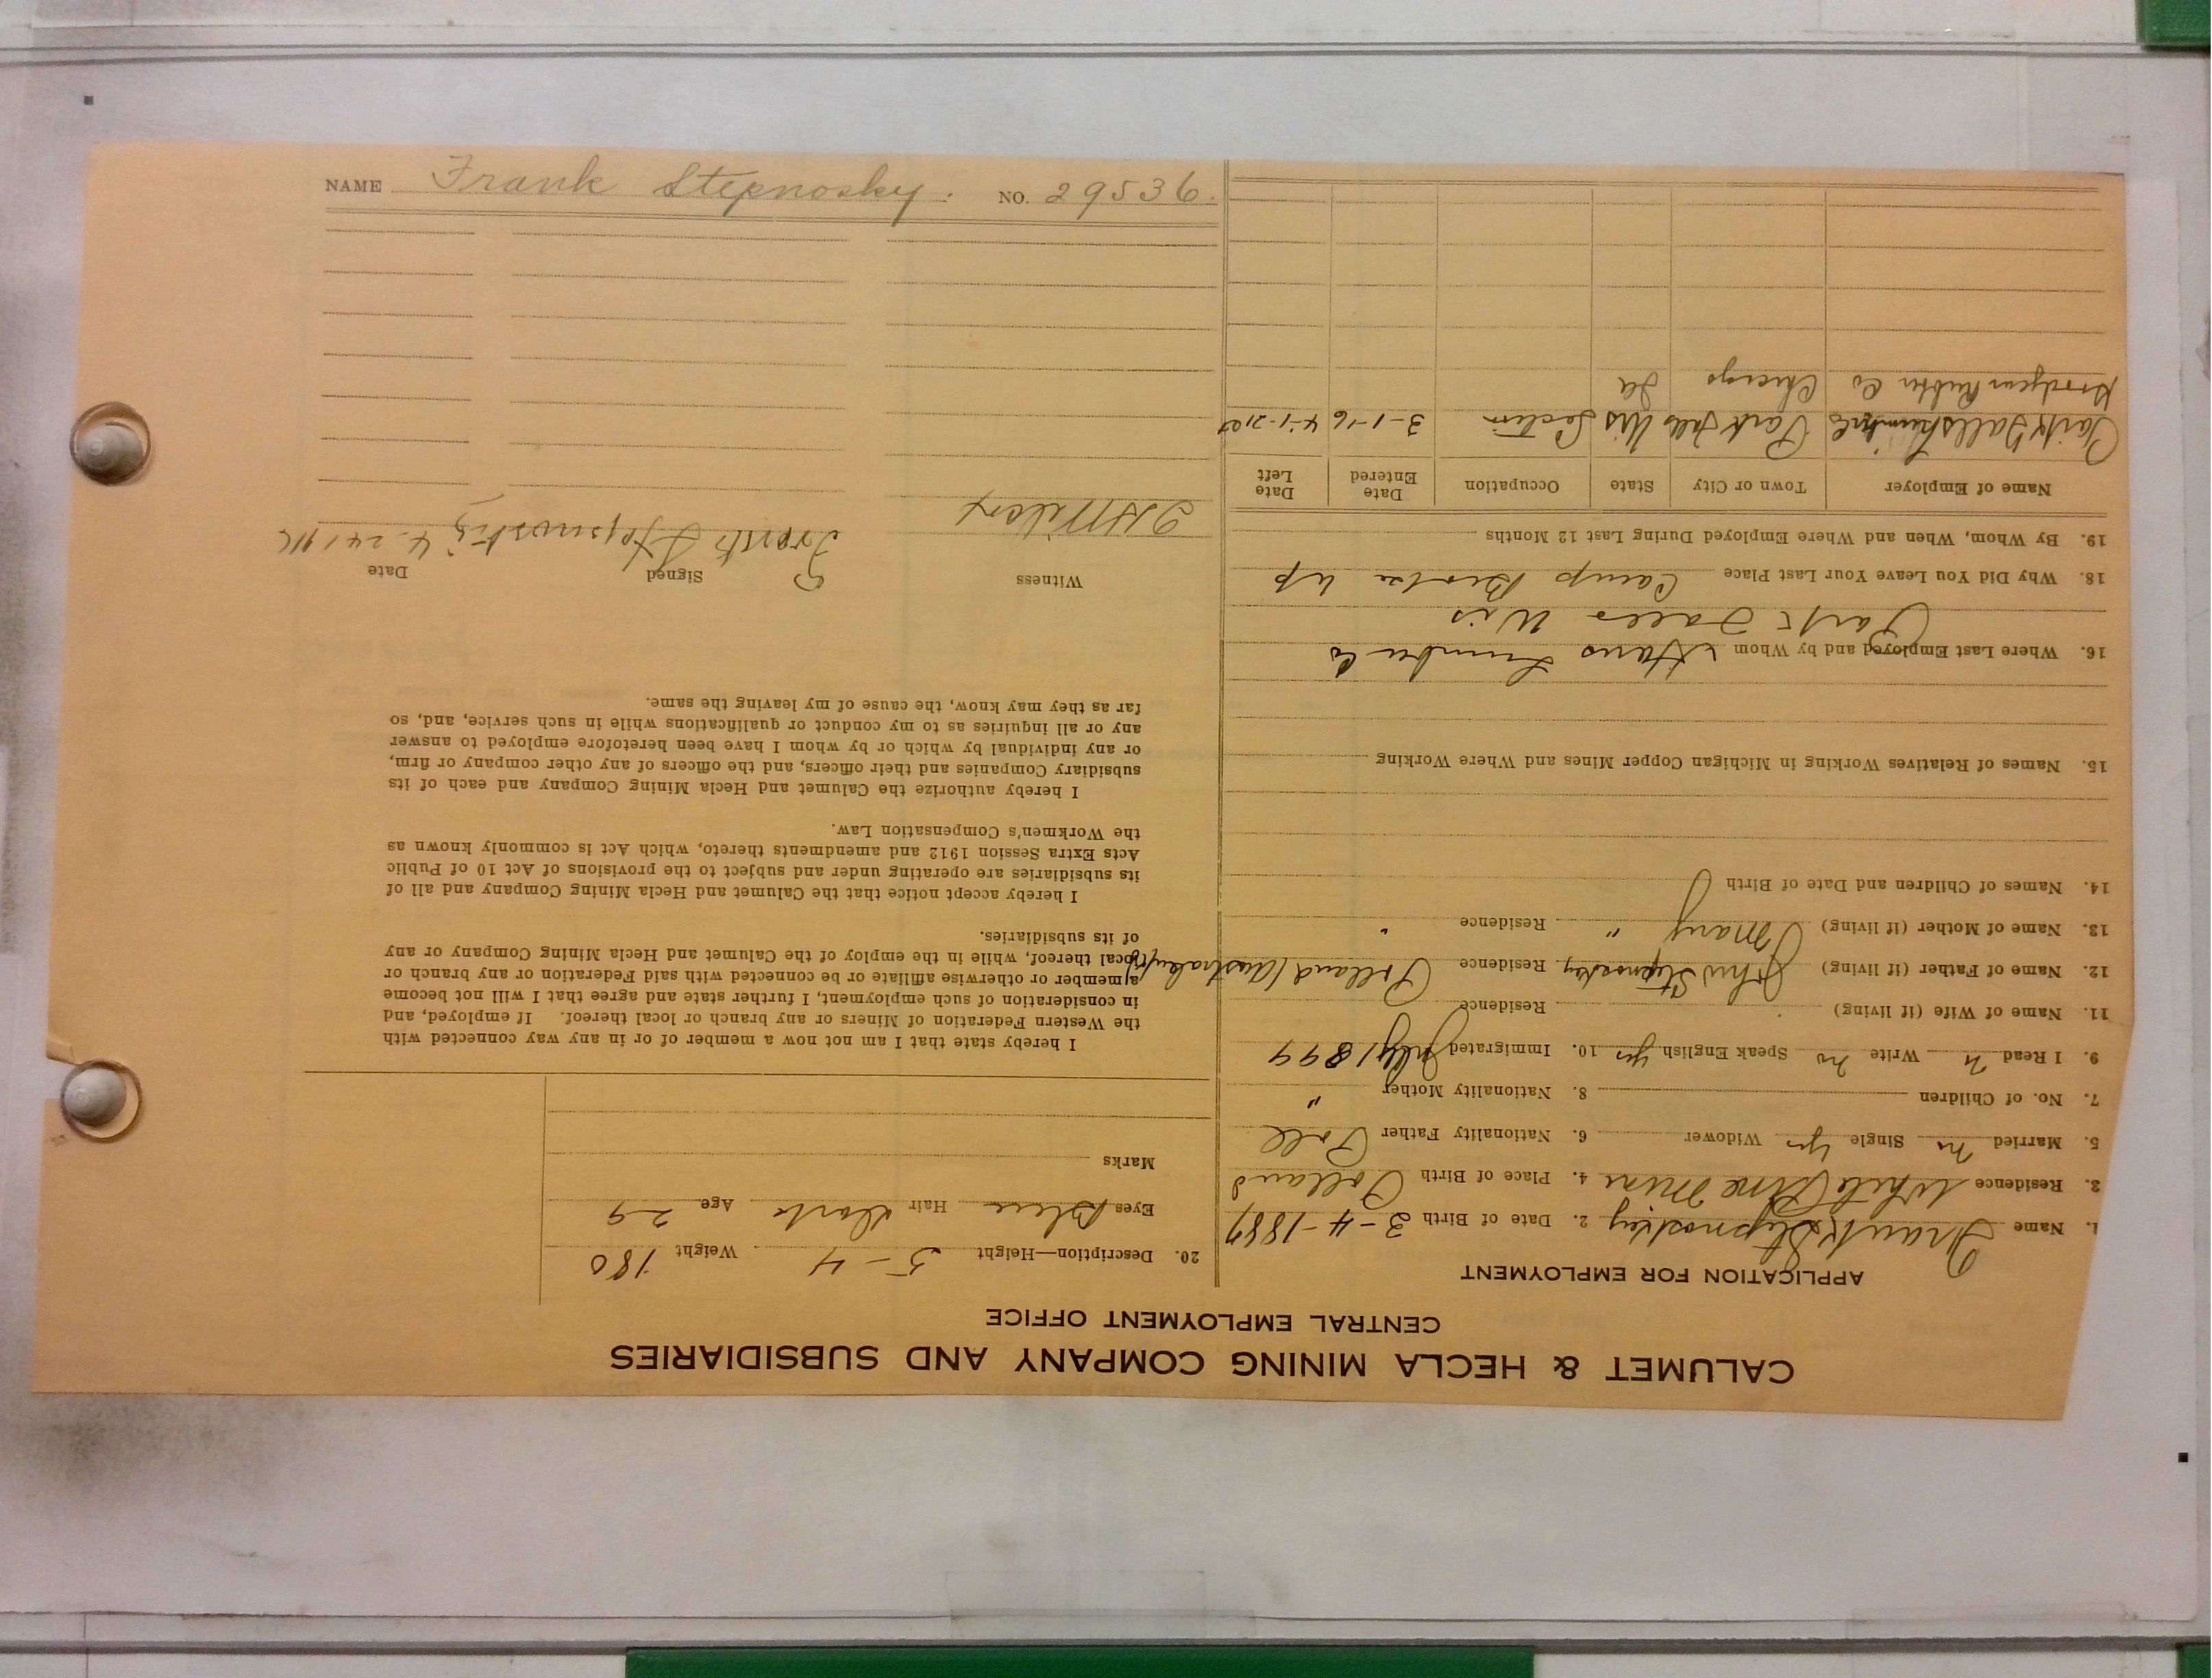 CALUMET & HECLA MINING COMPANY AND SUBSIDIARIES
CENTRAL EMPLOYMENT OFFICE
APPLICATION FOR EMPLOYMENT
1. Name Frank Stepnoskey 2. Date of Birth 3-4-1887
3. Residence White Pine Mine 4. Place of Birth Polland
5. Married no Single yes Widower 6. Nationality Father Poll
7. No. of Children 8. Nationality Mother "
9. I Read n Write no Speak English yes 10. Immigrated July 1899
11. Name of Wife (if living) Residence
12. Name of Father (if living) John Stepnoskey Residence Polland
13. Name of Mother (if living) Mary " Residence "
14. Names of Children and Date of Birth
15. Names of Relatives Working in Michigan Copper Mines and Where Working
16. Where Last Employed and by Whom Lumber Co
Park Falls Wis
18. Why Did You Leave Your Last Place Camp Broke up
19. By Whom, When and Where Employed During Last 12 Months
Name of Employer Town or City State Occupation Date Entered Date Left
Park Falls Park Falls Wis 3-1-16
Goodyear Rubber Co Chicago Ill
20. Description—Height 5-4 Weight 180
Eyes Blue Hair Dark Age 29
Marks
I hereby state that I am not now a member of or in any way connected with
the Western Federation of Miners or any branch or local thereof. If employed, and
in consideration of such employment, I further state and agree that I will not become
a member or otherwise affiliate or be connected with said Federation or any branch or
local thereof, while in the employ of the Calumet and Hecla Mining Company or any
of its subsidiaries.
I hereby accept notice that the Calumet and Hecla Mining Company and all of
its subsidiaries are operating under and subject to the provisions of Act 10 of Public
Acts Extra Session 1912 and amendments thereto, which Act is commonly known as
the Workmen's Compensation Law.
I hereby authorize the Calumet and Hecla Mining Company and each of its
subsidiary Companies and their officers, and the officers of any other company or firm,
or any individual by which or by whom I have been heretofore employed to answer
any or all inquiries as to my conduct or qualifications while in such service, and, so
far as they may know, the cause of my leaving the same.
Witness Signed Date
Frank 4-24
NAME Frank Stepnosky. NO. 29536.